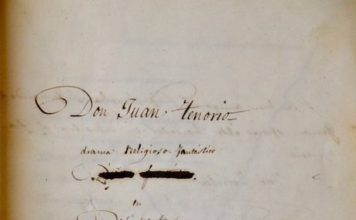 Don Juan Tenorio
drama religioso-fantástico
en